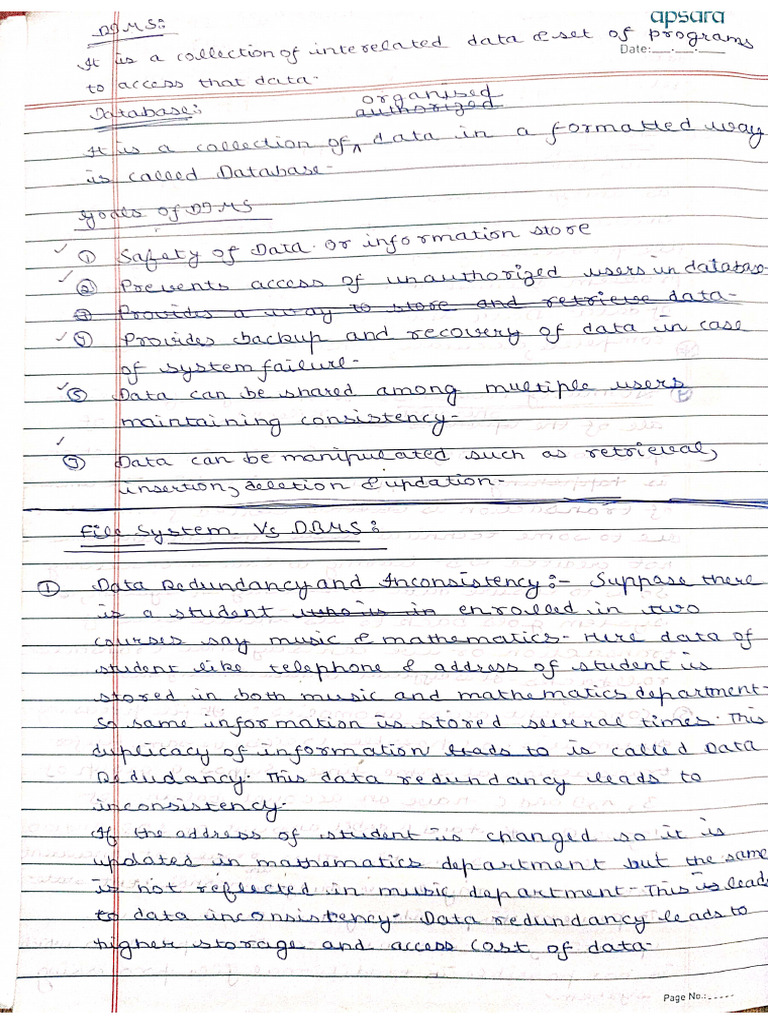 apsara
DBMS:
Date:__.__.____
It is a collection of interelated data & set of programs
to access that data.
Database:
organised
authorized
It is a collection of ^ data in a formatted way
is called Database.
Goals of DBMS
① Safety of Data or information store
② Prevents access of unauthorized users in databas
③ Provides a way to store and retrieve data.
④ Provides backup and recovery of data in case
of system failure.
⑤ Data can be shared among multiple users
maintaining consistency.
⑦ Data can be manipulated such as retrieval,
insertion, deletion & updation.
File System Vs DBMS:
① Data Redundancy and Inconsistency:- Suppose there
is a student who is in enrolled in two
courses say music & mathematics. Here data of
student like telephone & address of student is
stored in both music and mathematics department.
So same information is stored several times. This
duplicacy of information leads to is called Data
Redudancy. This data redundancy leads to
inconsistency.
If the address of student is changed so it is
updated in mathematics department but the same
is not reflected in music department. This is leads
to data inconsistency. Data redundancy leads to
higher storage and access cost of data.
Page No.: